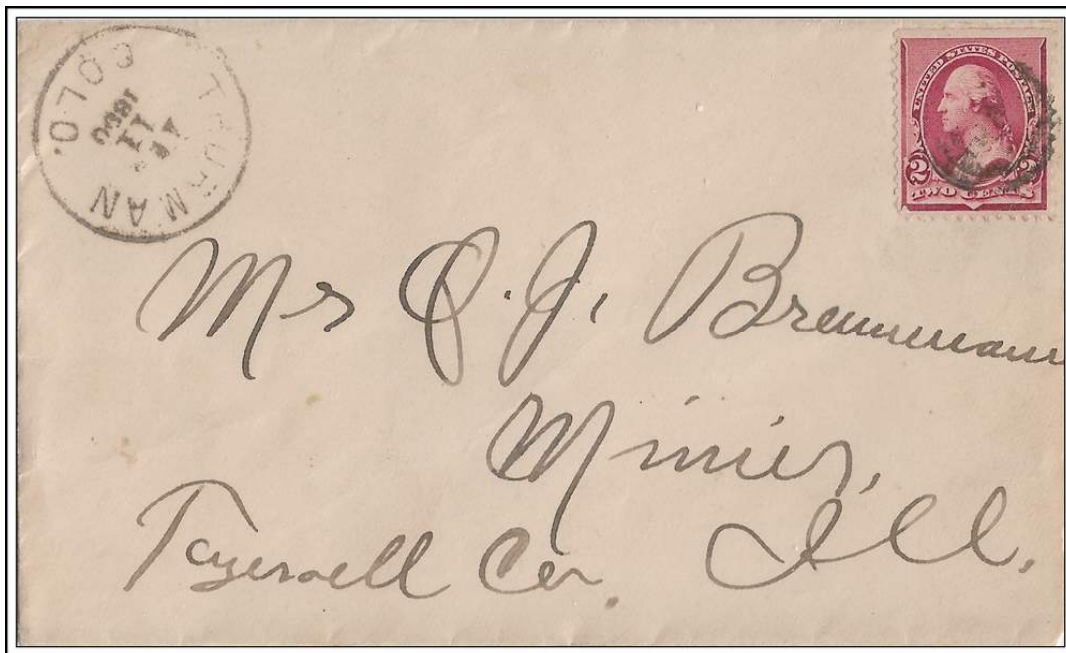 THURMAN
COLO.
11
1890
UNITED STATES POSTAGE
2 2
TWO CENTS
Mrs J. Brenneman
Minier,
Tazewell Co. Ill.